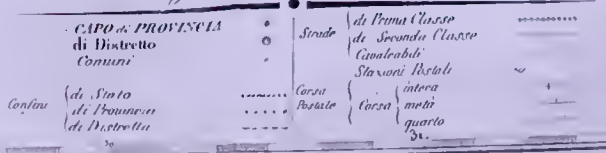 CAPO di PROVINCIA
di Distretto
Comuni
Confini
di Stato
di Provincia
di Distretto
Strade
di Prima Classe
di Seconda Classe
Cavalcabili
Stazioni Postali
Corsa Postale
Corsa
intera
metà
quarto
30
31.